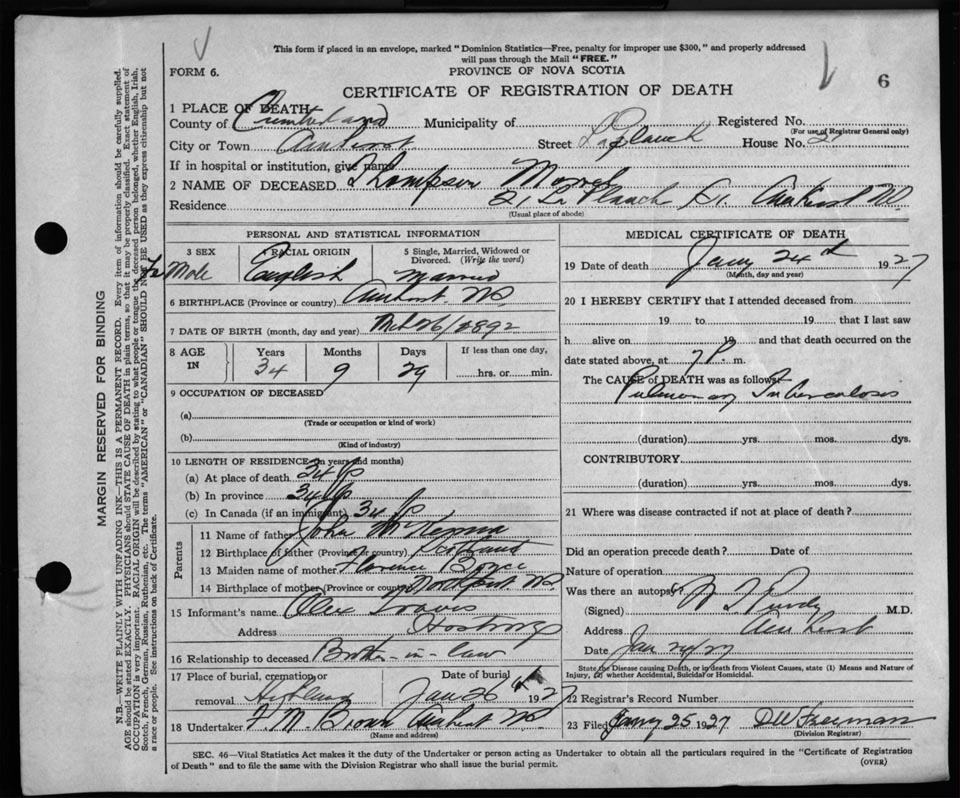 This form if placed in an envelope, marked "Dominion Statistics—Free, penalty for improper use $300," and properly addressed
will pass through the Mail "FREE."
FORM 6.
PROVINCE OF NOVA SCOTIA
6
CERTIFICATE OF REGISTRATION OF DEATH
1 PLACE OF DEATH
County of Cumberland Municipality of Registered No.
(For use of Registrar General only)
City or Town Amherst Street LaPlanch House No. 21
If in hospital or institution, give name
2 NAME OF DECEASED. Thompson
Residence 21 La Planch St. Amherst NS
(Usual place of abode)
PERSONAL AND STATISTICAL INFORMATION
3 SEX 4 RACIAL ORIGIN 5 Single, Married, Widowed or Divorced. (Write the word)
Fe Male English Married
6 BIRTHPLACE (Province or country) Amherst NS
7 DATE OF BIRTH (month, day and year) 26/1892
8 AGE IN Years Months Days If less than one day,
34 9 29 hrs. or min.
9 OCCUPATION OF DECEASED
(a)
(Trade or occupation or kind of work)
(b)
(Kind of industry)
10 LENGTH OF RESIDENCE (in years and months)
(a) At place of death 34
(b) In province 34
(c) In Canada (if an immigrant) 34
Parents
11 Name of father John
12 Birthplace of father (Province or country)
13 Maiden name of mother Florence Boyce
14 Birthplace of mother (Province or country) NS
15 Informant's name Alex
Address Hastings
16 Relationship to deceased Brother-in-law
17 Place of burial, cremation or removal Date of burial
Highland Jan 26th 1927
18 Undertaker F. M. Brown Amherst NS
(Name and address)
MEDICAL CERTIFICATE OF DEATH
19 Date of death Jany 24th 1927
(Month, day and year)
20 I HEREBY CERTIFY that I attended deceased from
19 to 19 that I last saw
h alive on 19 and that death occurred on the
date stated above, at 7 P. m.
The CAUSE of DEATH was as follows:
Pulmonary Tuberculosis
(duration) yrs. mos. dys.
CONTRIBUTORY.
(duration) yrs. mos. dys.
21 Where was disease contracted if not at place of death?
Did an operation precede death? Date of
Nature of operation
Was there an autopsy?
(Signed) Purdy M.D.
Address Amherst
Date Jan 24/27
State the Disease causing Death, or in death from Violent Causes, state (1) Means and Nature of
Injury, (2) whether Accidental, Suicidal or Homicidal.
22 Registrar's Record Number
23 Filed Jany 25 1927 D W Freeman
(Division Registrar)
SEC. 46—Vital Statistics Act makes it the duty of the Undertaker or person acting as Undertaker to obtain all the particulars required in the "Certificate of Registration
of Death" and to file the same with the Division Registrar who shall issue the burial permit.
(OVER)
MARGIN RESERVED FOR BINDING
N.B.—WRITE PLAINLY WITH UNFADING INK—THIS IS A PERMANENT RECORD. Every item of information should be carefully supplied.
AGE should be stated EXACTLY. PHYSICIANS should STATE CAUSE OF DEATH in plain terms, so that it may be properly classified. Exact statement of
OCCUPATION is very important. RACIAL ORIGIN will be described by stating to what people or tongue the deceased person belonged, whether English, Irish,
Scotch, French, German, Russian, Ruthenian, etc. The terms "AMERICAN" or "CANADIAN" SHOULD NOT BE USED as they express citizenship but not
a race or people. See instructions on back of Certificate.